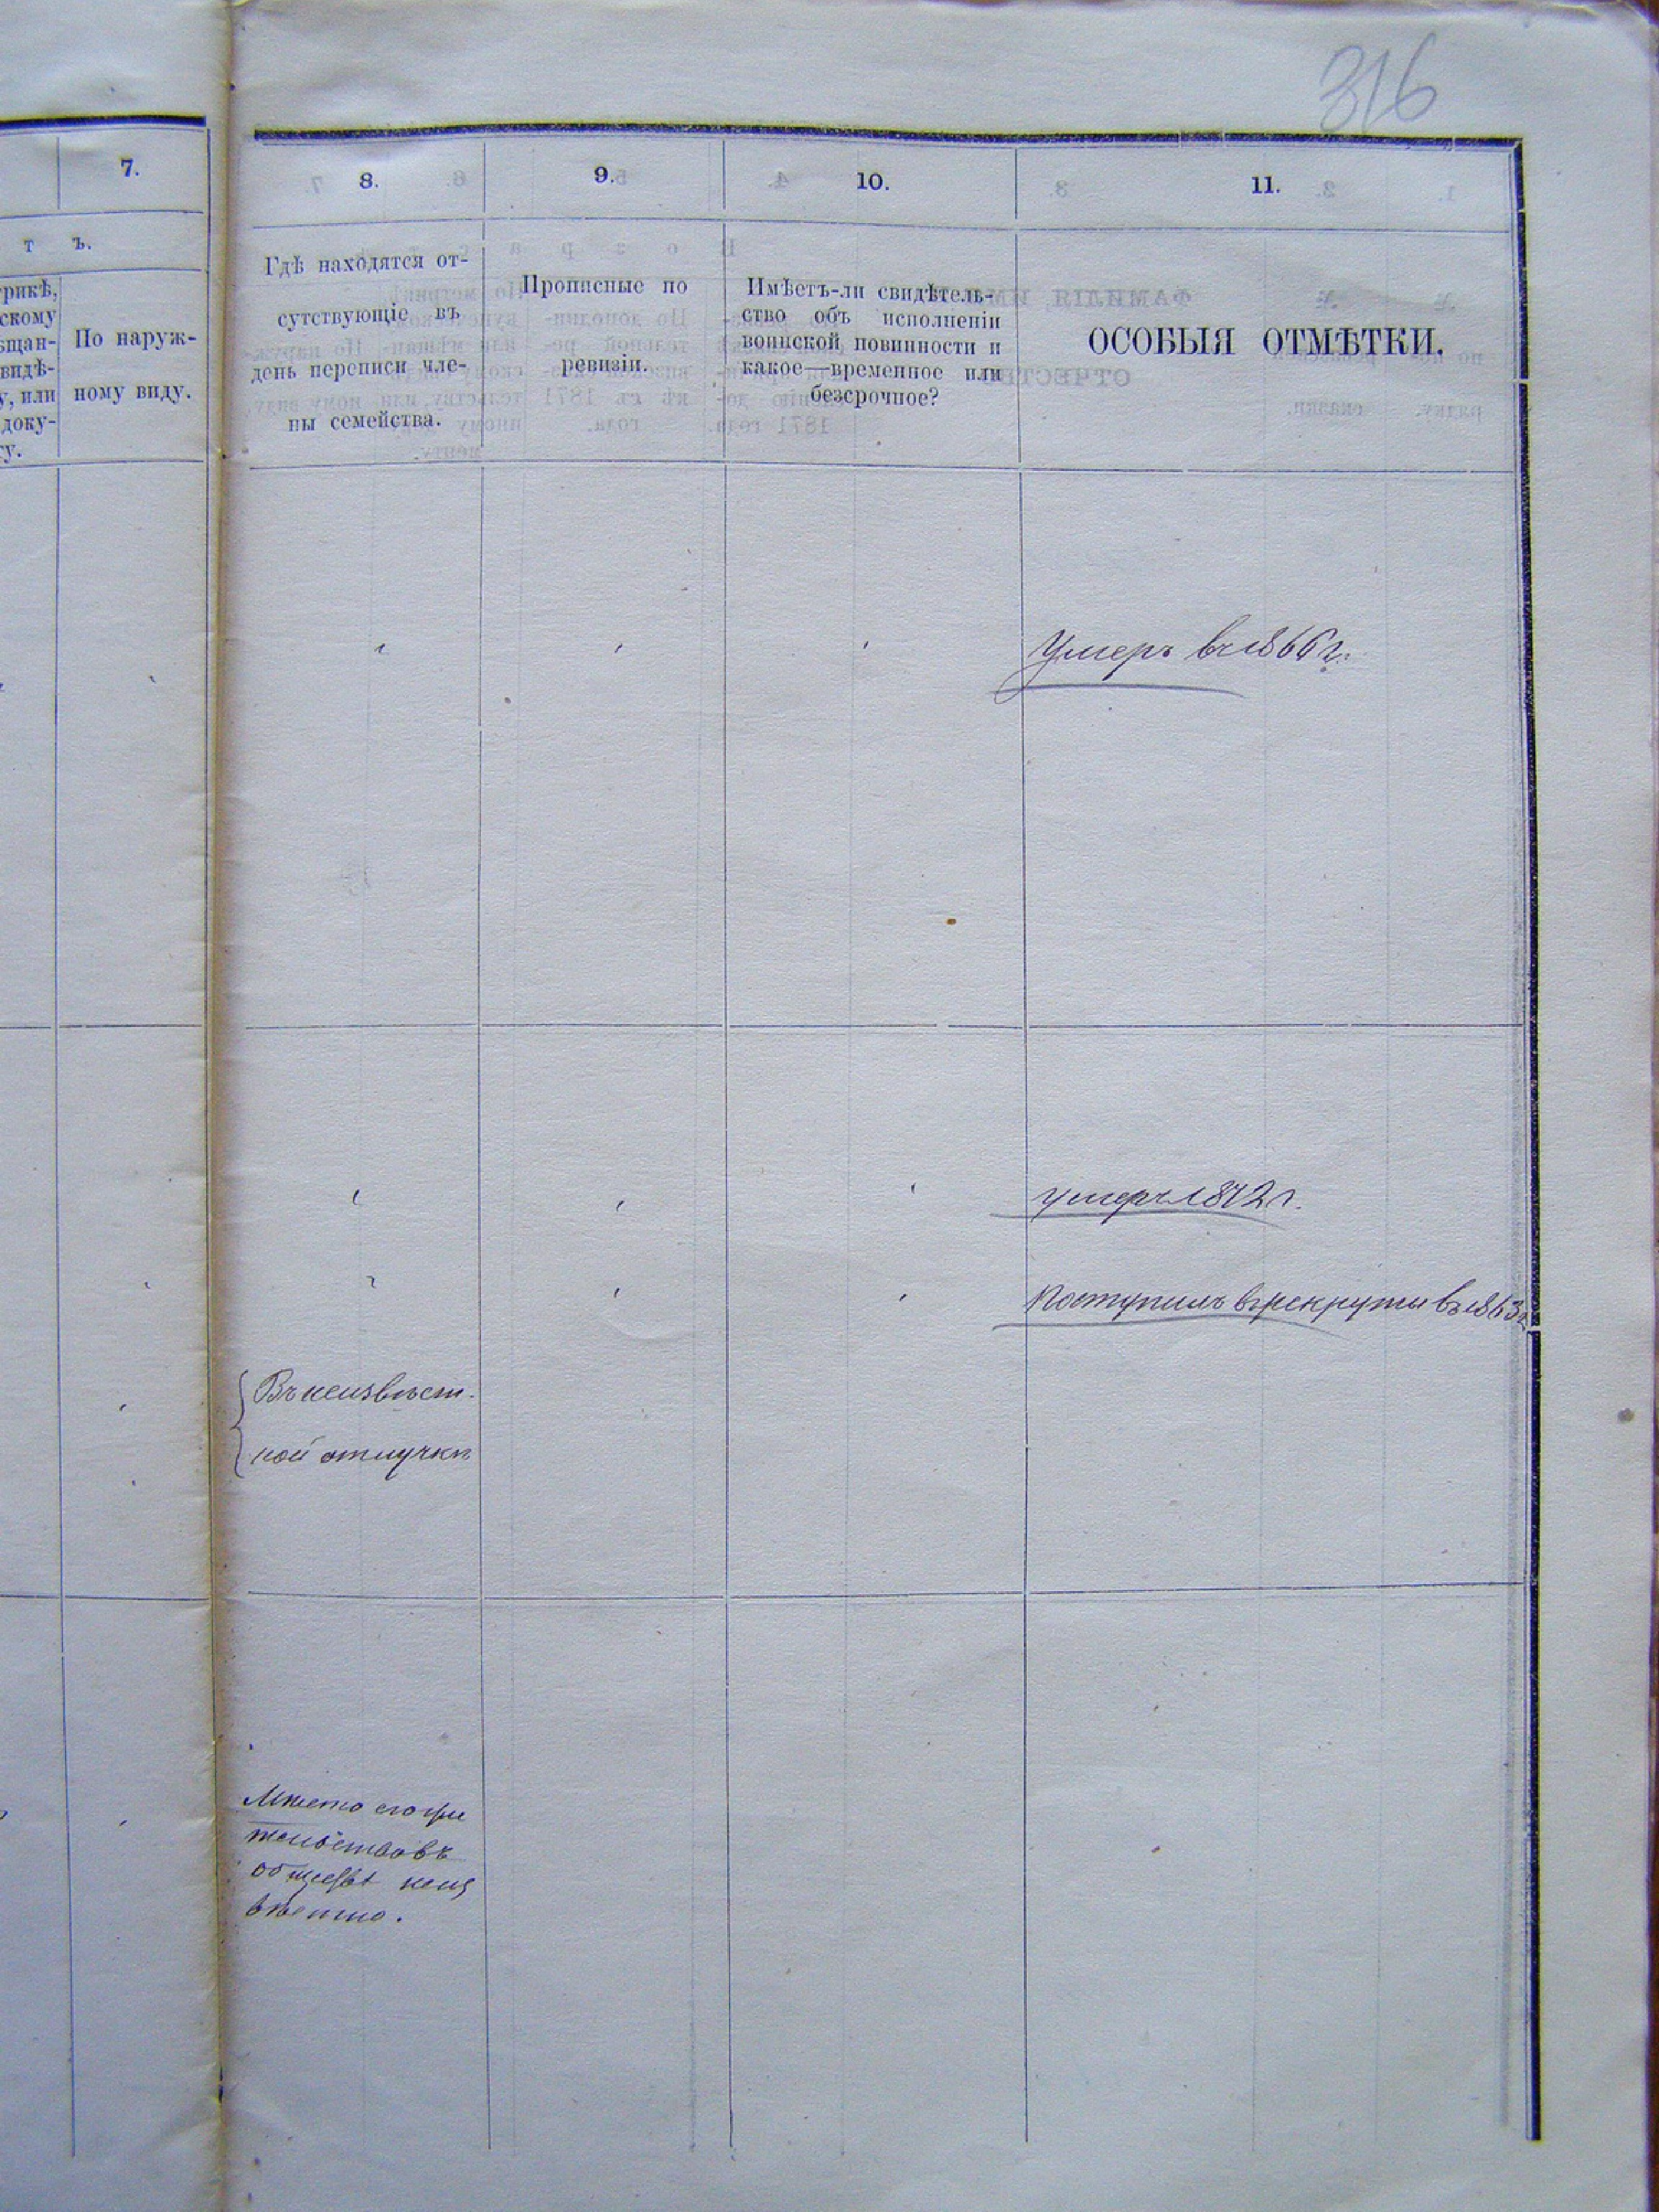 316
7.
8.
9.
10.
11.
т ъ.
рикѣ,
скому
ѣщан-
видѣ-
у, или
доку-
ту.
По наруж-
ному виду.
Гдѣ находятся от-
сутствующіе въ
день переписи чле-
ны семейства.
Прописные по
ревизіи.
Имѣетъ-ли свидѣтель-
ство объ исполненіи
воинской повинности и
какое—временное или
безсрочное?
ОСОБЫЯ ОТМѢТКИ.
Умеръ въ 1866 г.
умеръ 1872 г.
Поступилъ въ рекруты въ 1863 г
Въ неизвѣст-
ной отлучкѣ
Мѣсто его жи
тельства въ
обществѣ неиз
вѣстно.